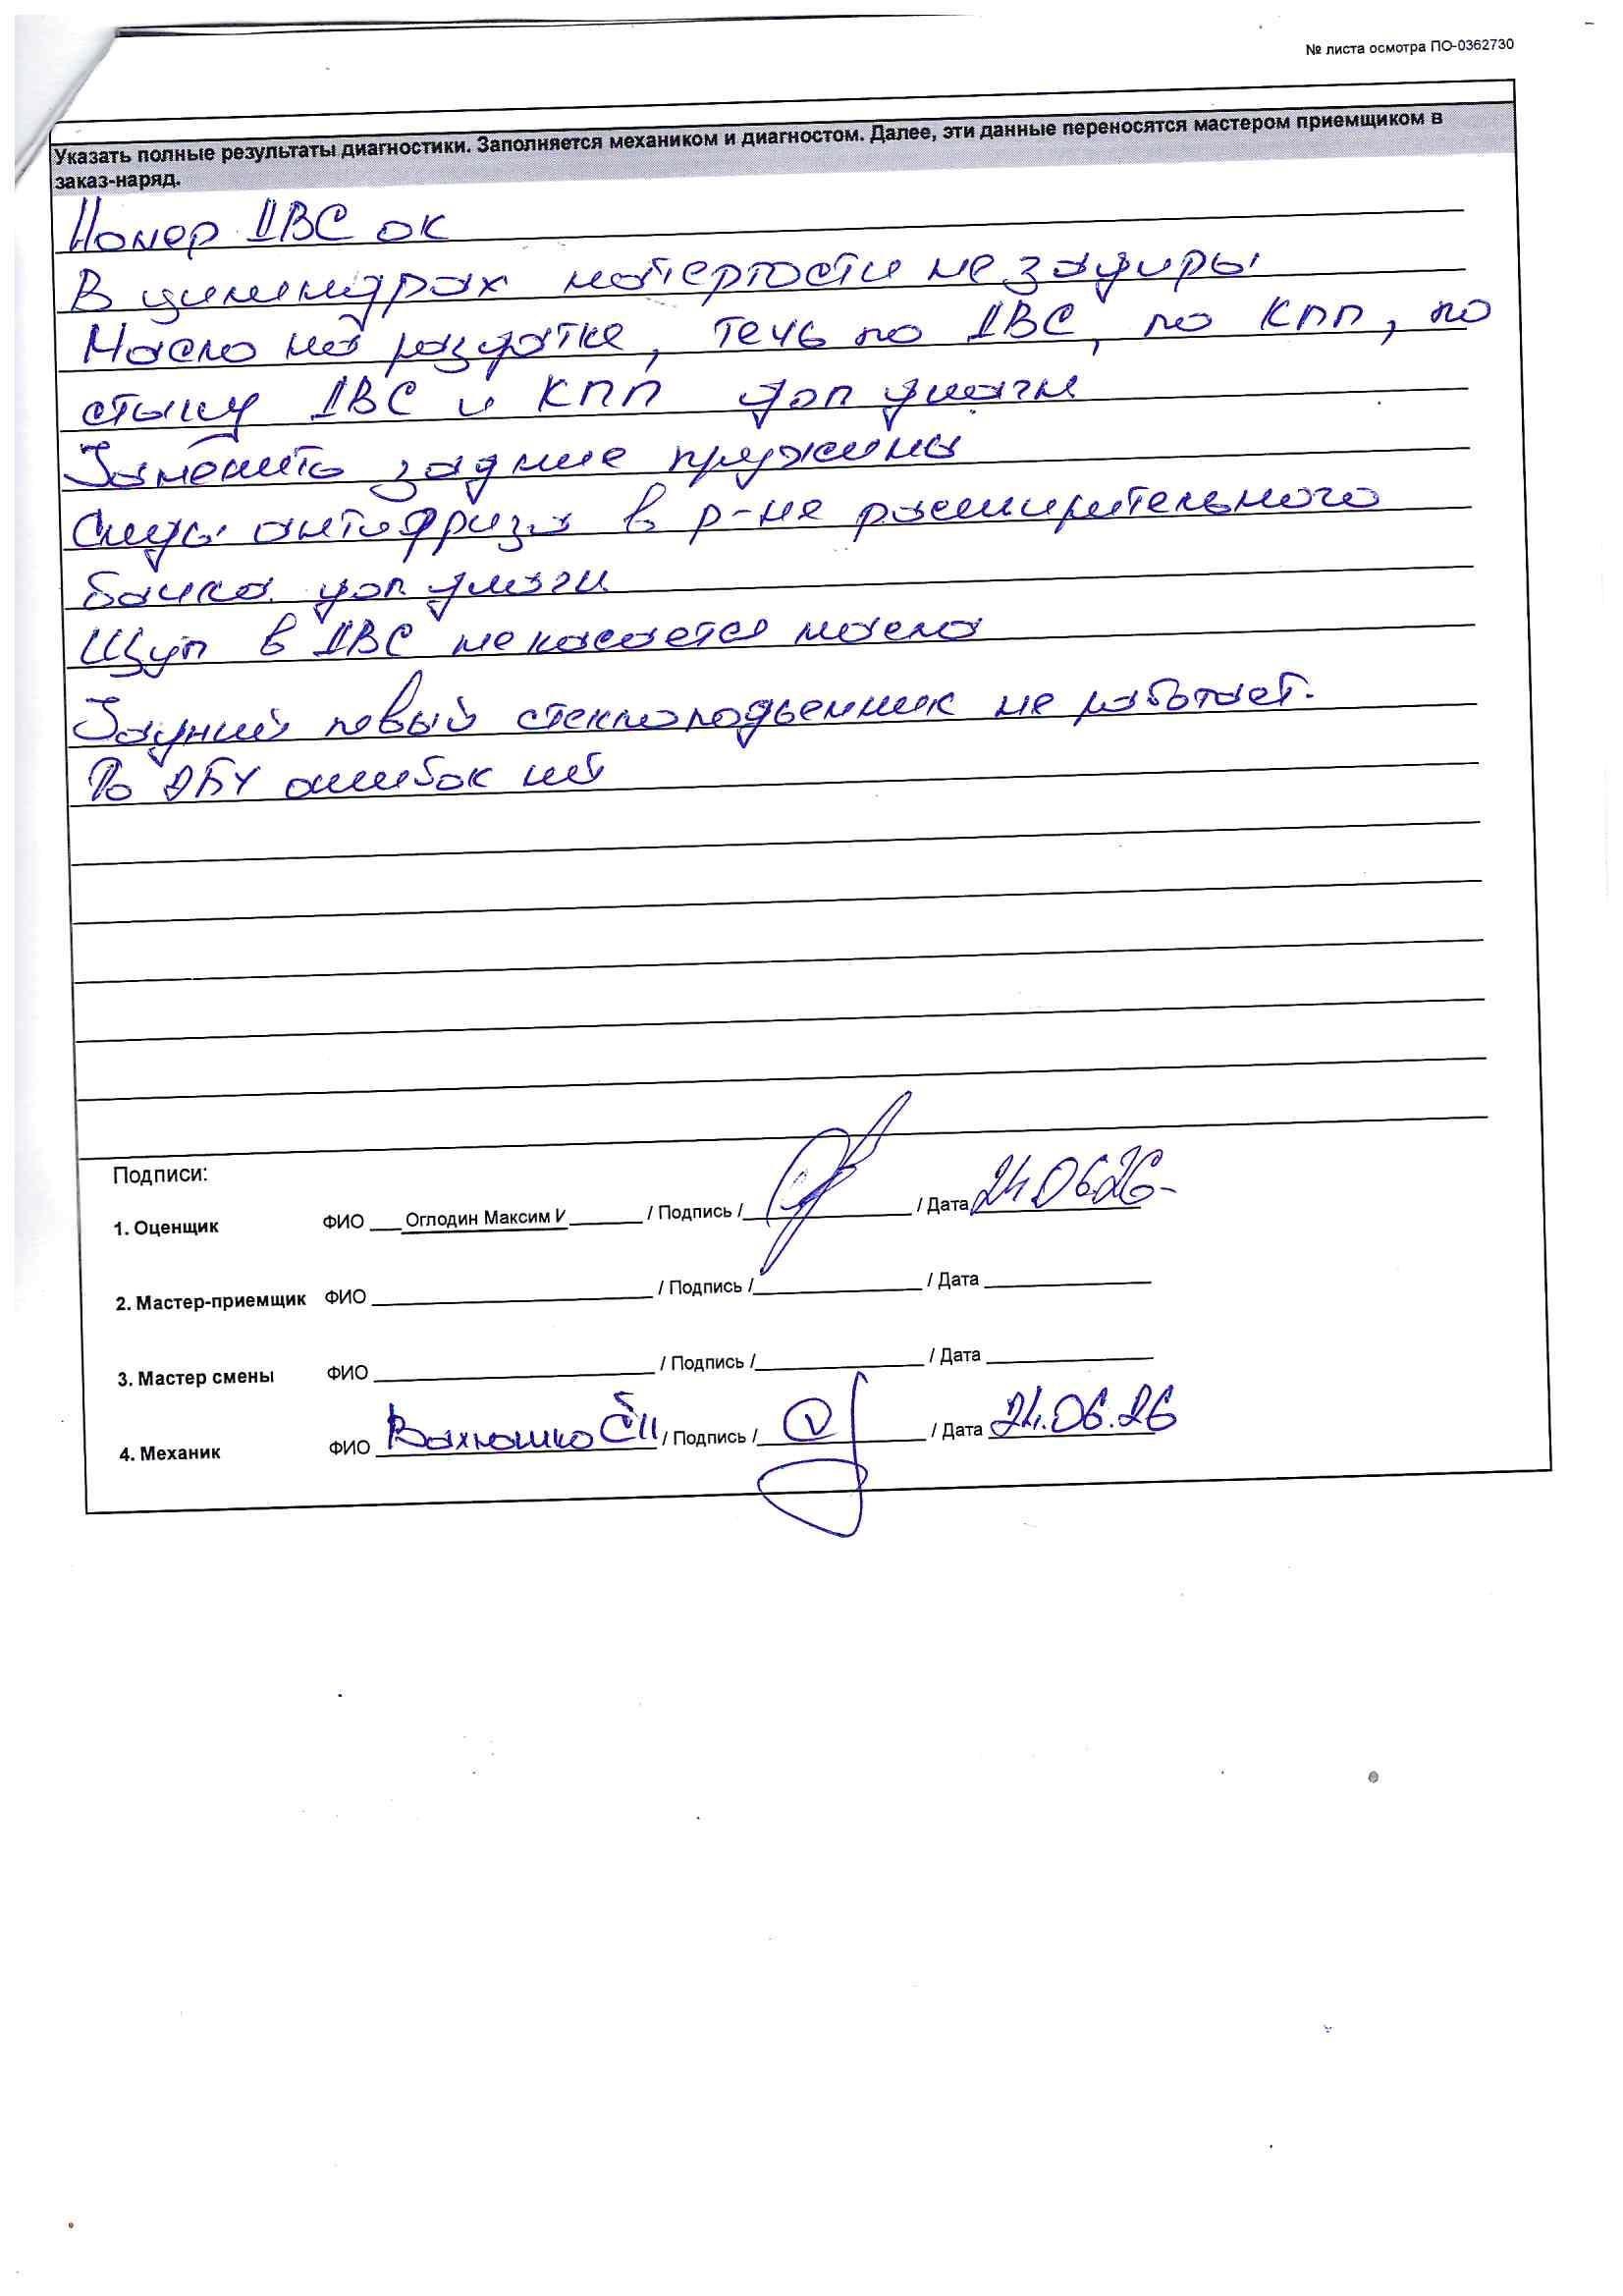 № листа осмотра ПО-0362730
Указать полные результаты диагностики. Заполняется механиком и диагностом. Далее, эти данные переносятся мастером приемщиком в
заказ-наряд.
Номер ДВС ок
В цилиндрах натертости не задиры
Масло на раздатке, течь по ДВС, по КПП, по
стыку ДВС и КПП доп диагн
Заменить задние пружины
Следы антифриза в р-не расширительного
бачка доп диагн
Щуп в ДВС не касается масла
Задний левый стеклоподьемник не работает.
По ЭБУ ошибок нет
Подписи:
1. Оценщик ФИО Оглодин Максим И / Подпись / / Дата 24.06.26
2. Мастер-приемщик ФИО / Подпись / / Дата
3. Мастер смены ФИО / Подпись / / Дата
4. Механик ФИО / Подпись / / Дата 24.06.26